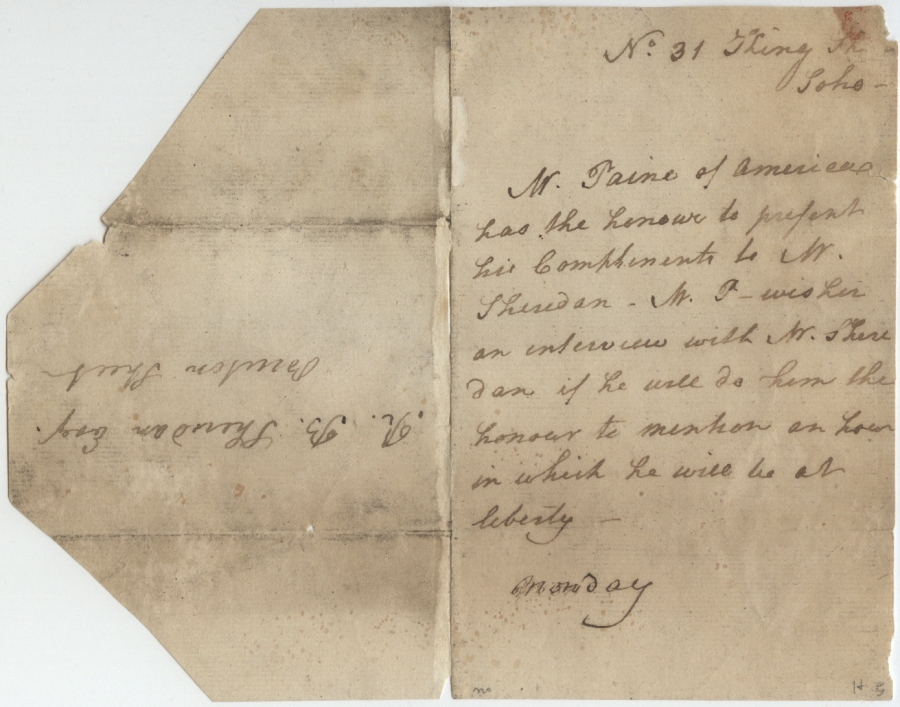 No. 31 King
Soho -
Mr. Paine of America
has the honour to present
his Compliments to Mr.
Sheredan - Mr. P - wishes
an interview with Mr. Shere
dan if he will do him the
honour to mention an hour
in which he will be at
liberty -
Monday
R. B. Sheredan Esqr.
Bruton Street